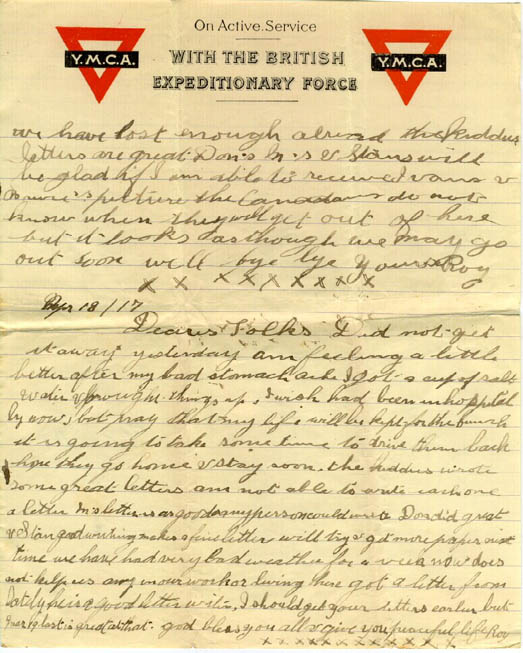 On Active Service
WITH THE BRITISH
EXPEDITIONARY FORCE
Y.M.C.A.
Y.M.C.A.
we have lost enough the kiddies
letters are great Don's M's & Stans will
be glad if I am able to received vans &
picture the Canadians do not
know when they will get out of here
but it looks as though we may go
out soon will bye bye Yours Roy
x x x x x x x x
Apr 18/17
Dears Folks Did not get
it away yesterday am feeling a little
better after my bad stomach ache I got a cup of salt
water & brought things up, I wish had been in hospital
by now, but pray that my life will be kept for the bunch
it is going to take some time to drive them back
hope they go home & stay soon. the kiddies wrote
some great letters am not able to write each one
a letter M's letter is as good as any person could write Don did great
& Stan good writing makes a fine letter will try & get more paper next
time we have had very bad weather for a week now does
not help us any in our work or living here got a letter from
he is a good letter writer, I should get your letters earlier but
last is great at that. god bless you all & give you peaceful life Roy
x x x x x x x x x x